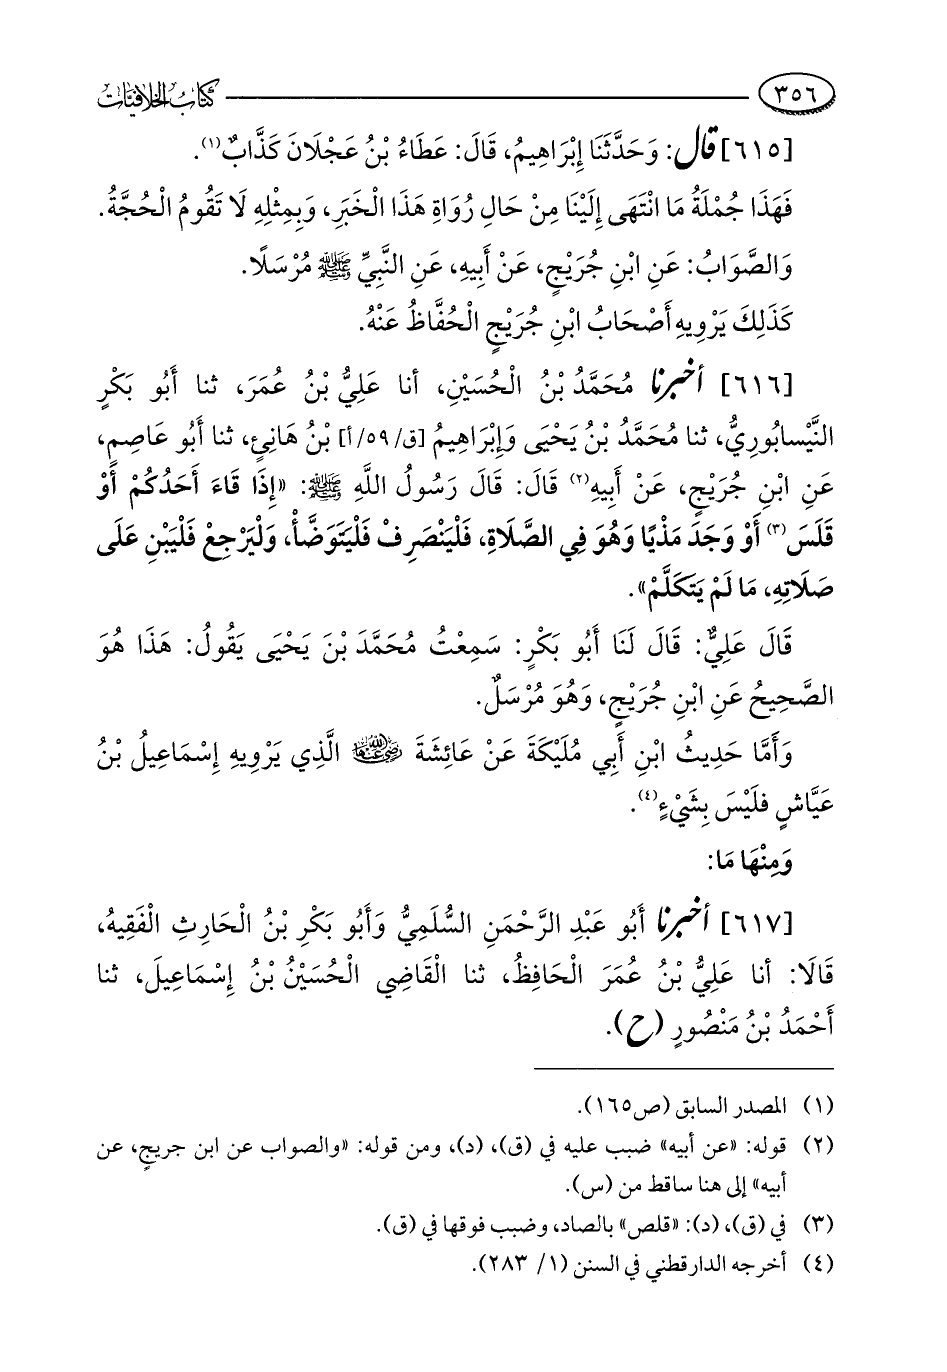 ٣٥٦ كتاب الخلافيات
[٦١٥] قال: وَحَدَّثَنَا إِبْرَاهِيمُ، قَالَ: عَطَاءُ بْنُ عَجْلَانَ كَذَّابٌ(١).
فَهَذَا جُمْلَةُ مَا انْتَهَى إِلَيْنَا مِنْ حَالِ رُوَاةِ هَذَا الْخَبَرِ، وَبِمِثْلِهِ لَا تَقُومُ الْحُجَّةُ.
وَالصَّوَابُ: عَنِ ابْنِ جُرَيْجٍ، عَنْ أَبِيهِ، عَنِ النَّبِيِّ ﷺ مُرْسَلًا.
كَذَلِكَ يَرْوِيهِ أَصْحَابُ ابْنِ جُرَيْجٍ الْحُفَّاظُ عَنْهُ.
[٦١٦] أخبرنا مُحَمَّدُ بْنُ الْحُسَيْنِ، أنا عَلِيُّ بْنُ عُمَرَ، ثنا أَبُو بَكْرٍ
النَّيْسابُورِيُّ، ثنا مُحَمَّدُ بْنُ يَحْيَى وَإِبْرَاهِيمُ [ق/ ٥٩/ أ] بْنُ هَانِئٍ، ثنا أَبُو عَاصِمٍ،
عَنِ ابْنِ جُرَيْجٍ، عَنْ أَبِيهِ(٢) قَالَ: قَالَ رَسُولُ اللَّهِ ﷺ: «إِذَا قَاءَ أَحَدُكُمْ أَوْ
قَلَسَ(٣) أَوْ وَجَدَ مَذْيًا وَهُوَ فِي الصَّلَاةِ، فَلْيَنْصَرِفْ فَلْيَتَوَضَّأْ، وَلْيَرْجِعْ فَلْيَبْنِ عَلَى
صَلَاتِهِ، مَا لَمْ يَتَكَلَّمْ».
قَالَ عَلِيٌّ: قَالَ لَنَا أَبُو بَكْرٍ: سَمِعْتُ مُحَمَّدَ بْنَ يَحْيَى يَقُولُ: هَذَا هُوَ
الصَّحِيحُ عَنِ ابْنِ جُرَيْجٍ، وَهُوَ مُرْسَلٌ.
وَأَمَّا حَدِيثُ ابْنِ أَبِي مُلَيْكَةَ عَنْ عَائِشَةَ رضي الله عنها الَّذِي يَرْوِيهِ إِسْمَاعِيلُ بْنُ
عَيَّاشٍ فلَيْسَ بِشَيْءٍ(٤).
وَمِنْهَا مَا:
[٦١٧] أخبرنا أَبُو عَبْدِ الرَّحْمَنِ السُّلَمِيُّ وَأَبُو بَكْرِ بْنُ الْحَارِثِ الْفَقِيهُ،
قَالَا: أنا عَلِيُّ بْنُ عُمَرَ الْحَافِظُ، ثنا الْقَاضِي الْحُسَيْنُ بْنُ إِسْمَاعِيلَ، ثنا
أَحْمَدُ بْنُ مَنْصُورٍ (ح).
(١) المصدر السابق (ص١٦٥).
(٢) قوله: «عن أبيه» ضبب عليه في (ق)، (د)، ومن قوله: «والصواب عن ابن جريجٍ، عن
أبيه» إلى هنا ساقط من (س).
(٣) في (ق)، (د): «قلص» بالصاد، وضبب فوقها في (ق).
(٤) أخرجه الدارقطني في السنن (١/ ٢٨٣).